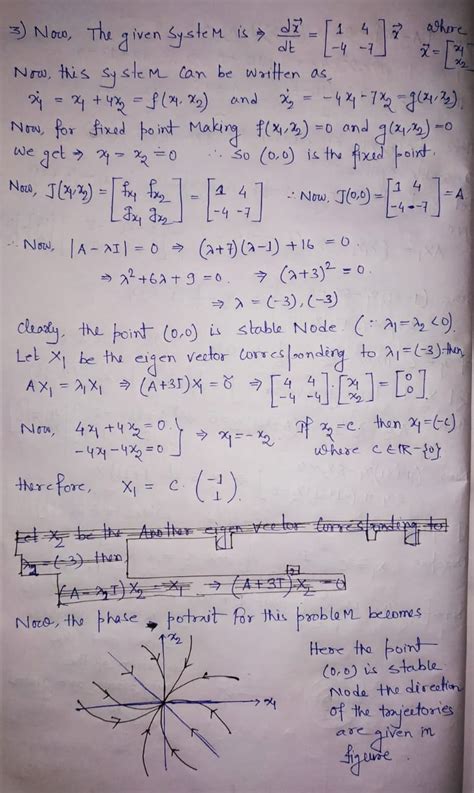 3) Now, The given System is ⇒ dx⃗/dt = [1 4; -4 -7] x⃗ where x⃗ = [x₁; x₂]
Now, this system can be written as,
ẋ₁ = x₁ + 4x₂ = f(x₁, x₂) and ẋ₂ = -4x₁ - 7x₂ = g(x₁, x₂).
Now, for fixed point Making f(x₁, x₂) = 0 and g(x₁, x₂) = 0
We get ⇒ x₁ = x₂ = 0 ∴ So (0,0) is the fixed point.
Now, J(x₁, x₂) = [fx₁ fx₂; gx₁ gx₂] = [1 4; -4 -7] ∴ Now, J(0,0) = [1 4; -4 -7] = A
∴ Now, |A - λI| = 0 ⇒ (λ+7)(λ-1) + 16 = 0
⇒ λ² + 6λ + 9 = 0. ⇒ (λ+3)² = 0.
⇒ λ = (-3), (-3)
Clearly, the point (0,0) is stable Node. (∵ λ₁ = λ₂ < 0).
Let X₁ be the eigen vector corresponding to λ₁ = (-3) then
AX₁ = λ₁X₁ ⇒ (A+3I)X₁ = 0⃗ ⇒ [4 4; -4 -4] · [x₁; x₂] = [0; 0]
Now, 4x₁ + 4x₂ = 0. -4x₁ - 4x₂ = 0 } ⇒ x₁ = -x₂ If x₂ = c. then x₁ = (-c)
where c ∈ ℝ - {0}
therefore, X₁ = c · (-1; 1)
Let X₂ be the Another eigen vector corresponding to
λ₂ = (-3) then
(A - λ₂I)X₂ = X₁ ⇒ (A+3I)² X₂ = 0
Now, the phase potrait for this problem becomes
x₂
x₁
Here the point
(0,0) is stable
Node the direction
of the trajectories
are given in
figure.